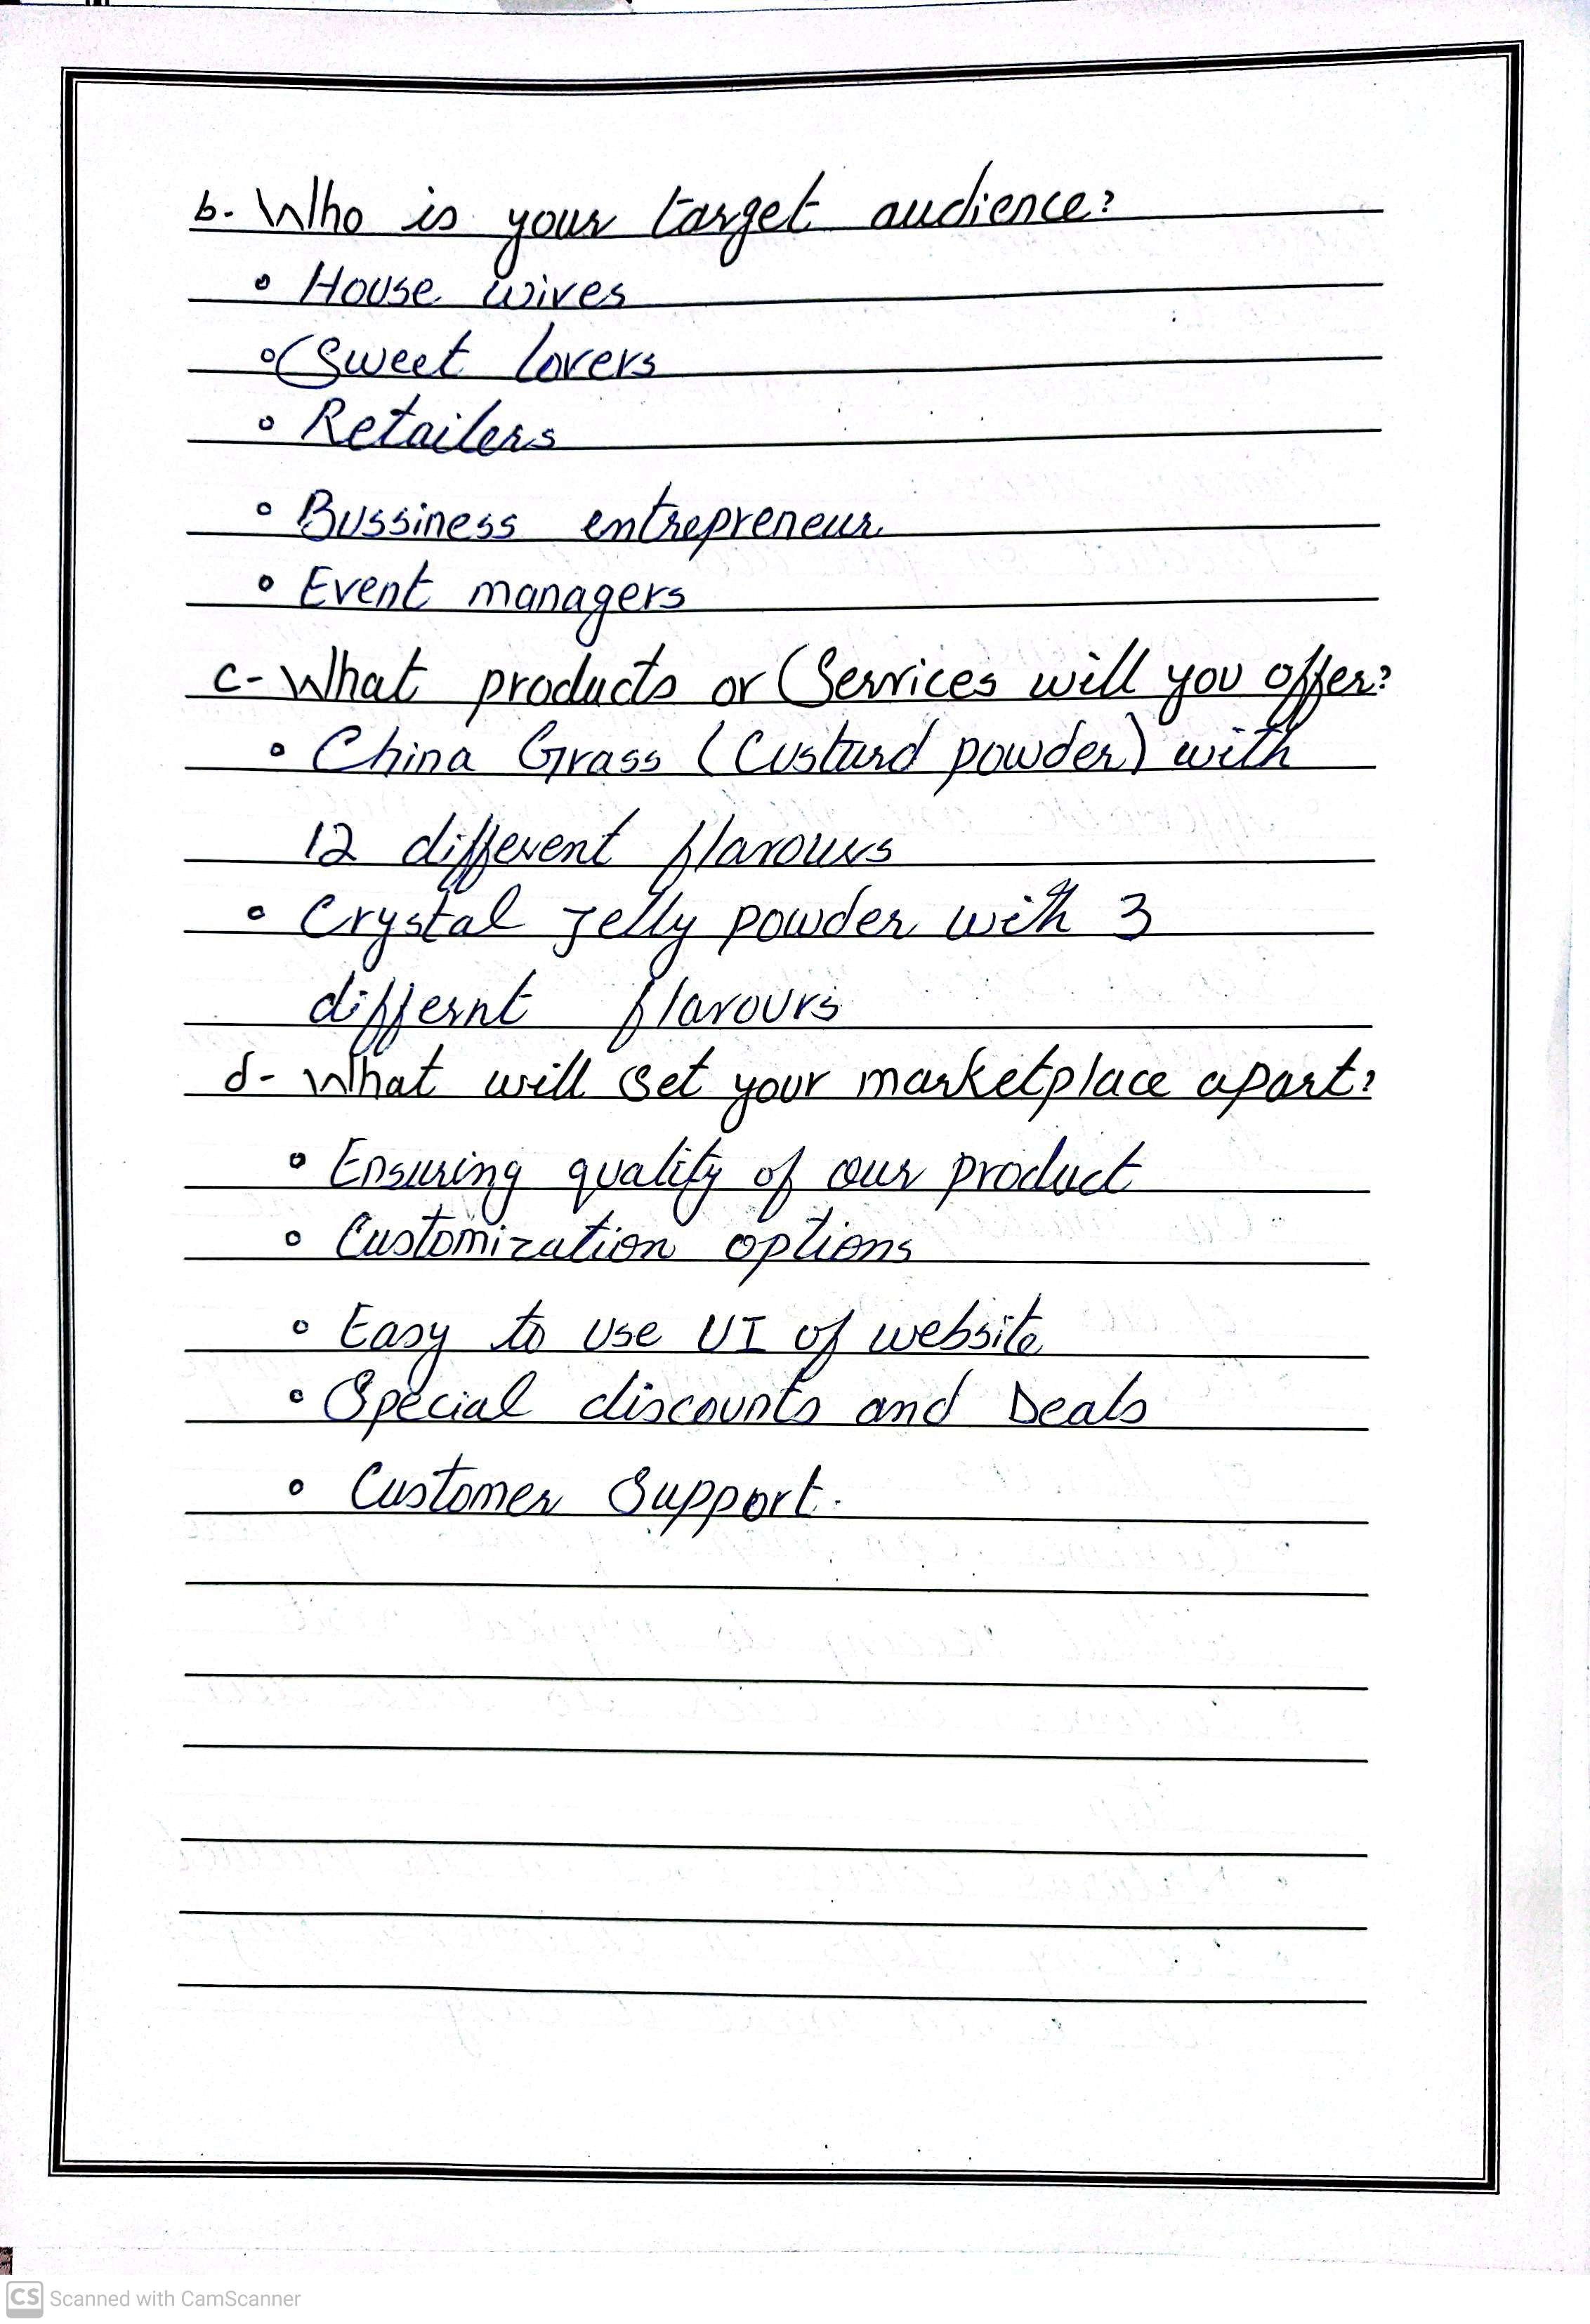 b- Who is your target audience?
∘ House wives
∘ Sweet lovers
∘ Retailers
∘ Bussiness entrepreneur
∘ Event managers
c- What products or Services will you offer?
∘ China Grass (Custurd powder) with
12 different flavours
∘ Crystal Jelly powder with 3
differnt flavours
d- What will set your marketplace apart?
∘ Ensuring quality of our product
∘ Customization options
∘ Easy to use UI of website
∘ Special discounts and Deals
∘ Customer Support.
CS Scanned with CamScanner